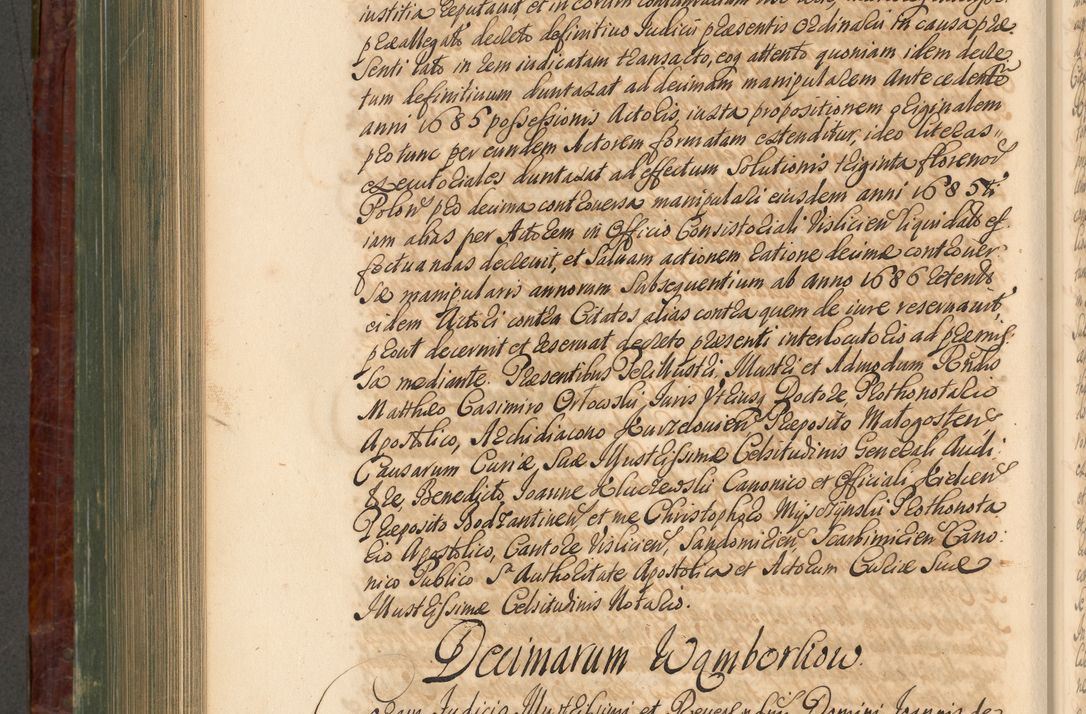 præallegato decreto definitivo Judicii præsentis ordinarii in causa præ
senti lato in rem iudicatam transacto, eoq attento quoniam idem decre
tum definitiuum duntaxat ad decimam manipularem antecedentis
anni 1685 possessionis Actoris, iuxta propositionem originalem
pro tunc per eundem Actorem formatam extenditur, ideo literas
executoriales duntaxat ad effectum Solutionis triginta florenor
Polon pro decima controversa manipulari eiusdem anni 1685ti
iam alias per Actorem in Officio Consistoriali Vislicien liquidato ef
fectuandas decreuit, et Saluam actionem ratione decimæ controuer
sæ manipularis annorum Subsequentium ab anno 1686
eidem Actori contra Citatos alias contra quem de iure reseruauit,
prout decernit et reseruat decreto præsenti interlocutorio ad præmis
sa mediante. Præsentibus Perillustri, Illustri et Admodum Rndis
Matthæo Casimiro Orłowski, Juris Vtriusq Doctore, Prothonotario
Apostolico, Archidiacono Kurzelouien Præposito Małogosten
Causarum Curiæ, Suæ Illustrissimæ Celsitudinis Generali Audi
tore, Benedicto Joanne Kluczewski Canonico et Officiali Kielcen
Præposito Bodzantinen et me Christophoro Myszyński Prothonota
rio Apostolico, Cantore Vislicien, Sandomirien Scarbimirien Cano:
nico Publico Sa Authoritate Apostolica et Actorum Curiæ Suæ
Illustrissimæ Celsitudinis Notario.
Decimarum Wąmborkow.
Judicio Illustrissimi et Reverendissimi Domini Joannis de